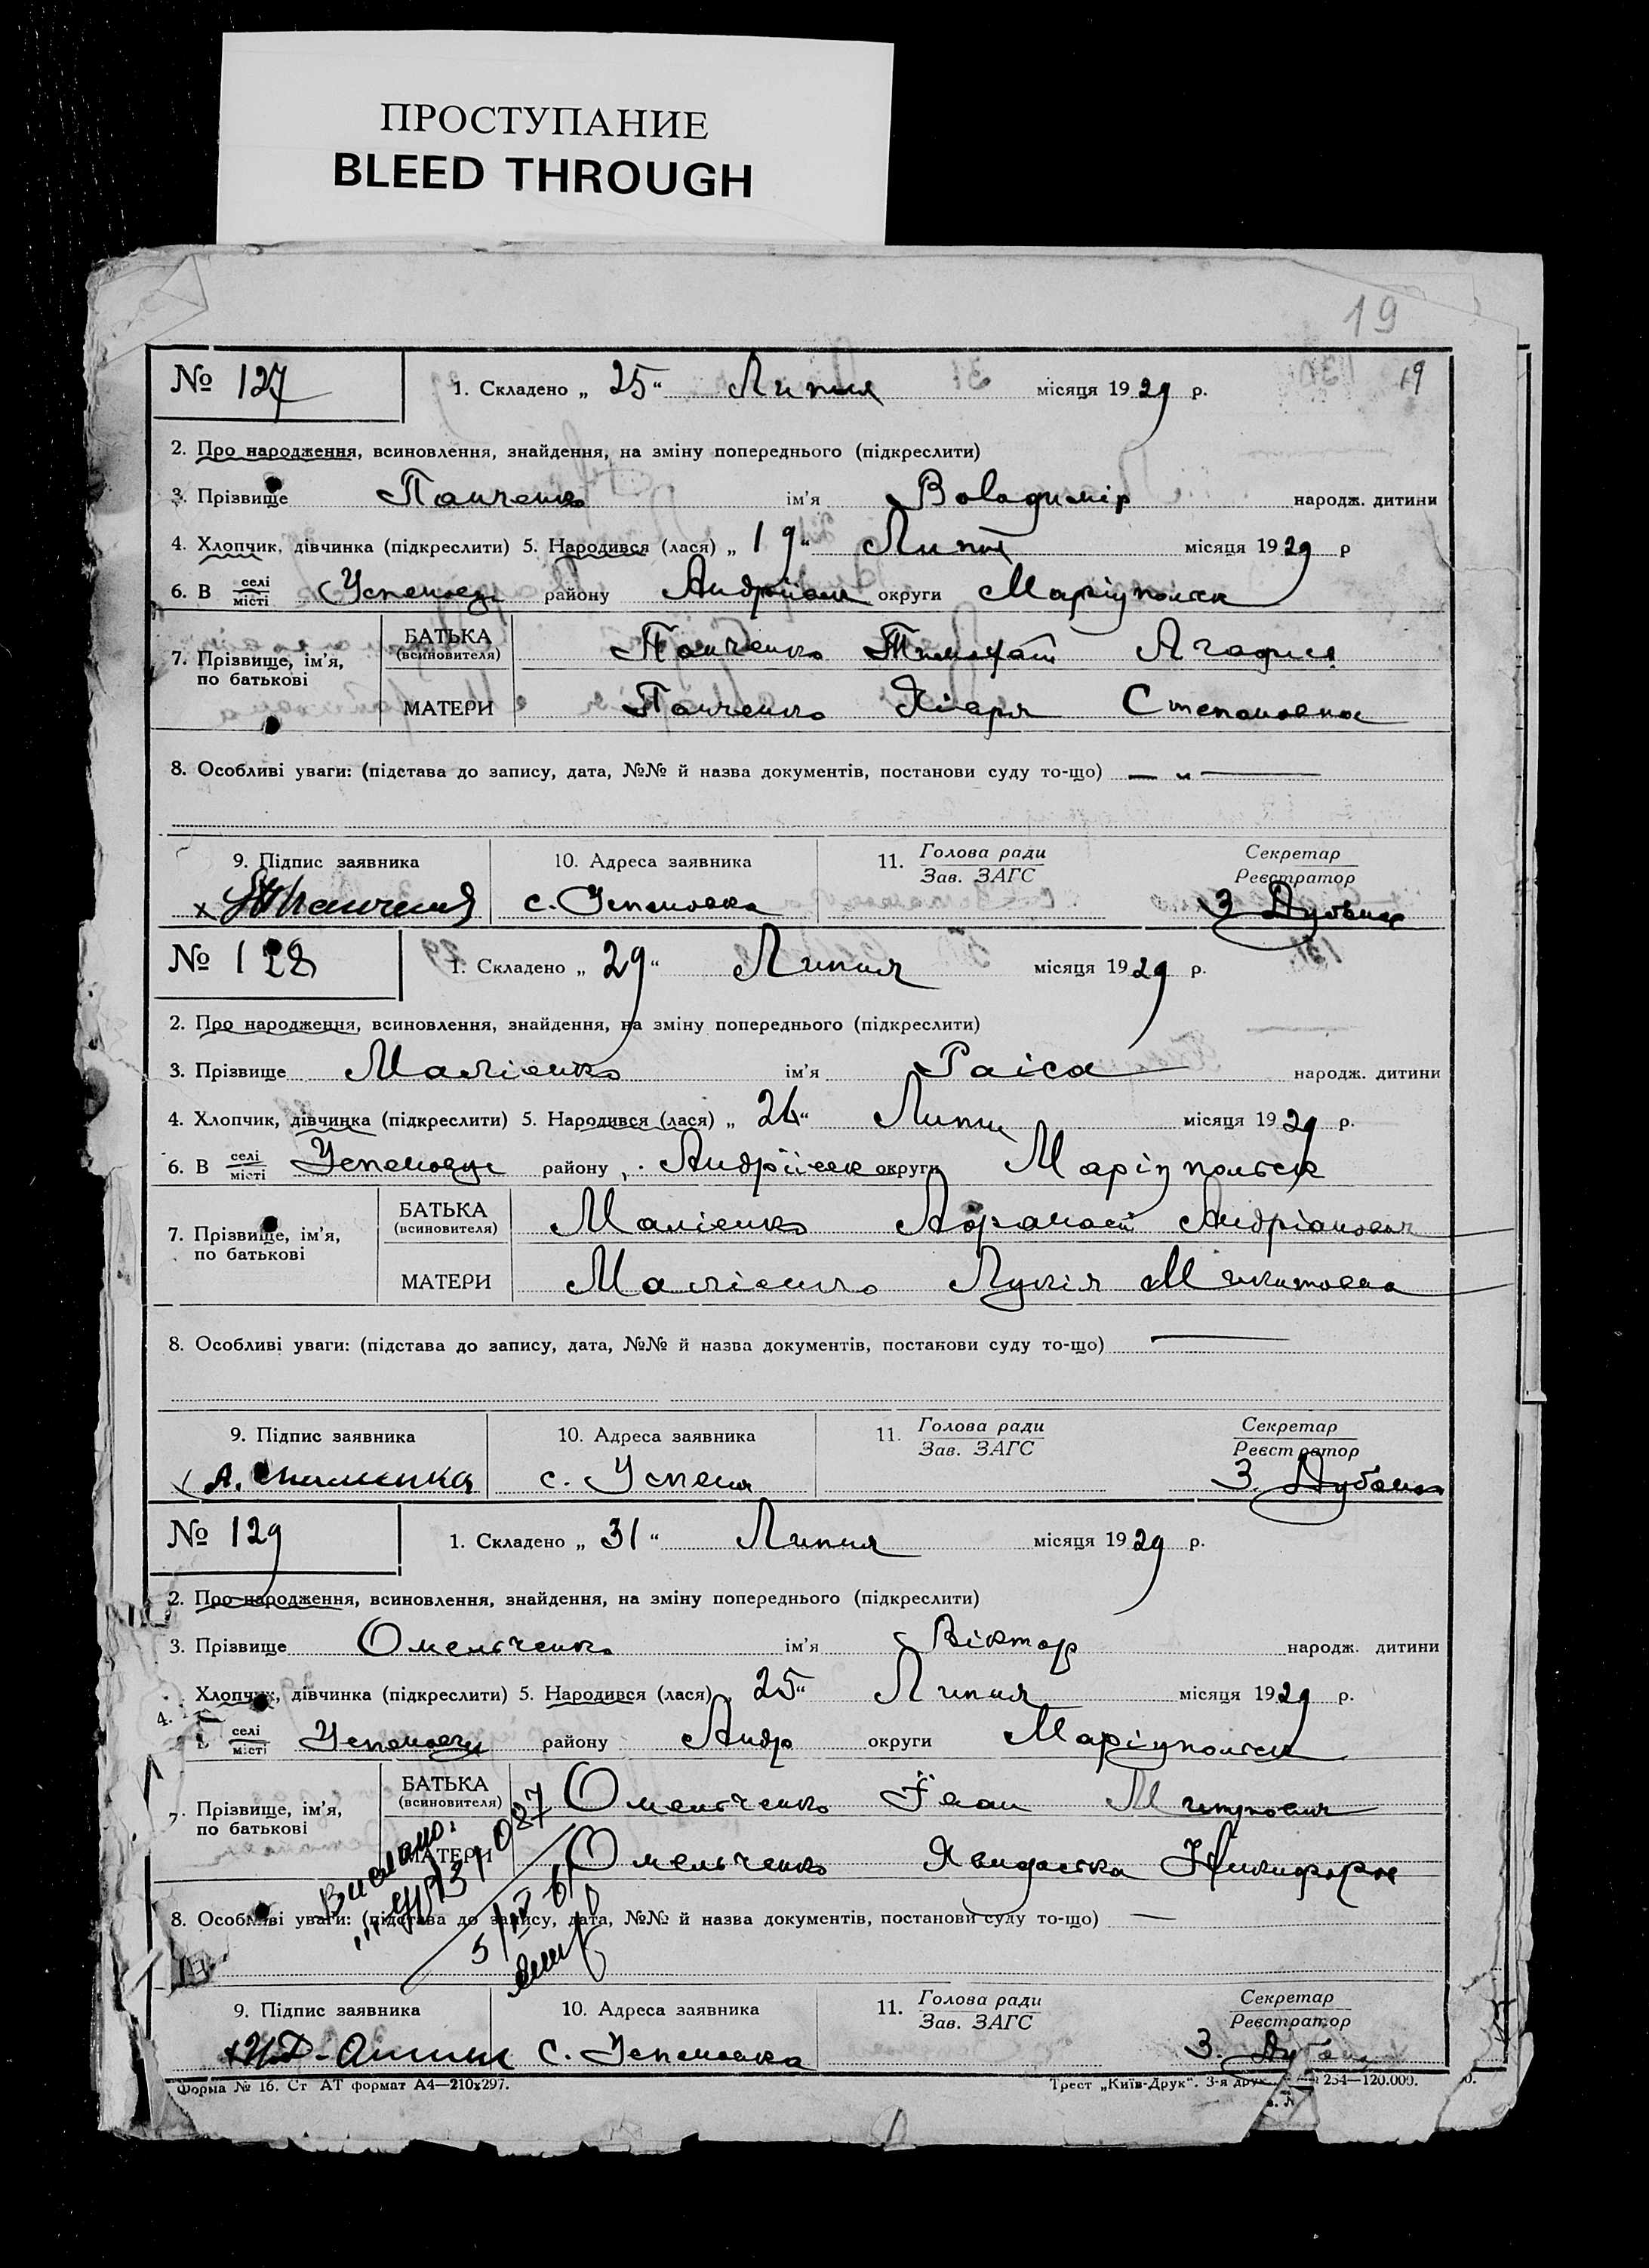 ПРОСТУПАНИЕ
BLEED THROUGH
19
№ 127 1. Складено „ 25 “ Липня місяця 1929 р. 19
2. Про народження, всиновлення, знайдення, на зміну попереднього (підкреслити)
3. Прізвище Панченко ім’я Володимір народж. дитини
4. Хлопчик, дівчинка (підкреслити) 5. Народився (лася) „ 19 “ Липня місяця 1929 р
6. В селі місті Успеновци району Андріївськ округи Маріупольськ
7. Прізвище, ім’я, по батькові
БАТЬКА (всиновителя) Панченко Тимофій
МАТЕРИ Панченко Степановна
8. Особливі уваги: (підстава до запису, дата, №№ й назва документів, постанови суду то-що) — „ —
9. Підпис заявника 10. Адреса заявника 11. Голова ради Зав. ЗАГС Секретар Реєстратор
х с. Успеновка З Дубина
№ 128 1. Складено „ 29 “ Липня місяця 1929 р.
2. Про народження, всиновлення, знайдення, на зміну попереднього (підкреслити)
3. Прізвище Малієнко ім’я Раіса народж. дитини
4. Хлопчик, дівчинка (підкреслити) 5. Народився (лася) „ 26 “ Липня місяця 1929 р.
6. В селі місті Успеновци району Андріївськ округи Маріупольськ
7. Прізвище, ім’я, по батькові
БАТЬКА (всиновителя) Малієнко Афанасій Андріанович
МАТЕРИ Малієнко Лукія Микитовна
8. Особливі уваги: (підстава до запису, дата, №№ й назва документів, постанови суду то-що) —
9. Підпис заявника 10. Адреса заявника 11. Голова ради Зав. ЗАГС Секретар Реєстратор
х А. с. Успен З. Дубина
№ 129 1. Складено „ 31 “ Липня місяця 1929 р.
2. Про народження, всиновлення, знайдення, на зміну попереднього (підкреслити)
3. Прізвище Омельченко ім’я Віктор народж. дитини
4. Хлопчик, дівчинка (підкреслити) 5. Народився (лася) „ 25 “ Липня місяця 1929 р.
В селі місті Успеновци району Андр округи Маріупольськ
7. Прізвище, ім’я, по батькові
БАТЬКА (всиновителя) Омельченко Іван
МАТЕРИ Омельченко
8. Особливі уваги: (підстава до запису, дата, №№ й назва документів, постанови суду то-що) —
9. Підпис заявника 10. Адреса заявника 11. Голова ради Зав. ЗАГС Секретар Реєстратор
с. Успеновка З. Дубина
Форма № 16. Ст АТ формат А4—210x297. Трест „Київ-Друк“. 3-я друк. 254—120.000.